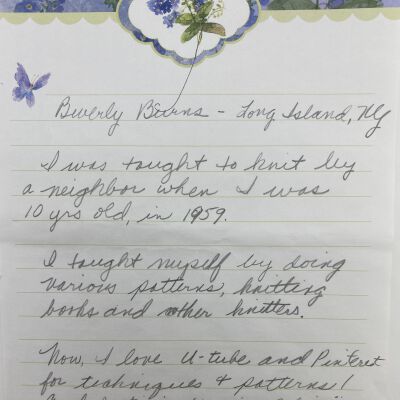 Beverly Burns - Long Island, NY
I was taught to knit by
a neighbor when I was
10 yrs old, in 1959.
I taught myself by doing
various patterns, knitting
books and other knitters.
Now, I love U-tube and Pinterest
for techniques + patterns!